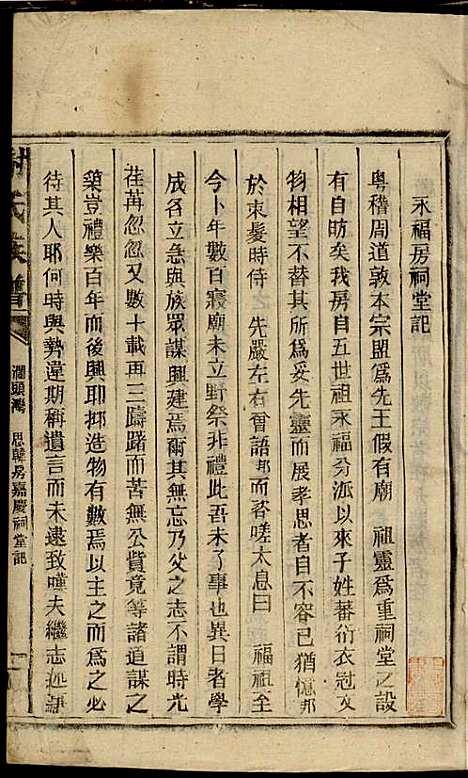 永福房祠堂記
粵稽周道敦本宗盟為先王假有廟　祖靈為重祠堂之設
有自昉矣我房自五世祖永福分派以來子姓蕃衍衣冠文
物相望不替其所為妥先靈而展孝思者自不容已猶憶邦
於束髮時侍　先嚴左右曾語邦而咨嗟太息曰　福祖至
今卜年數百寢廟未立野祭非禮此吾未了事也異日者學
成名立急與族眾謀興建焉爾其無忘乃父之志不謂時光
荏苒忽忽又數十載再三躊躇而苦無公貲竟等諸道謀之
築豈禮樂百年而後興耶抑造物有數焉以主之而為之必
待其人耶何時與勢違期稱遺言而未逮致嘆夫繼志述事
氏族譜
瀾頭灣　思賢房嘉慶祠堂記
一